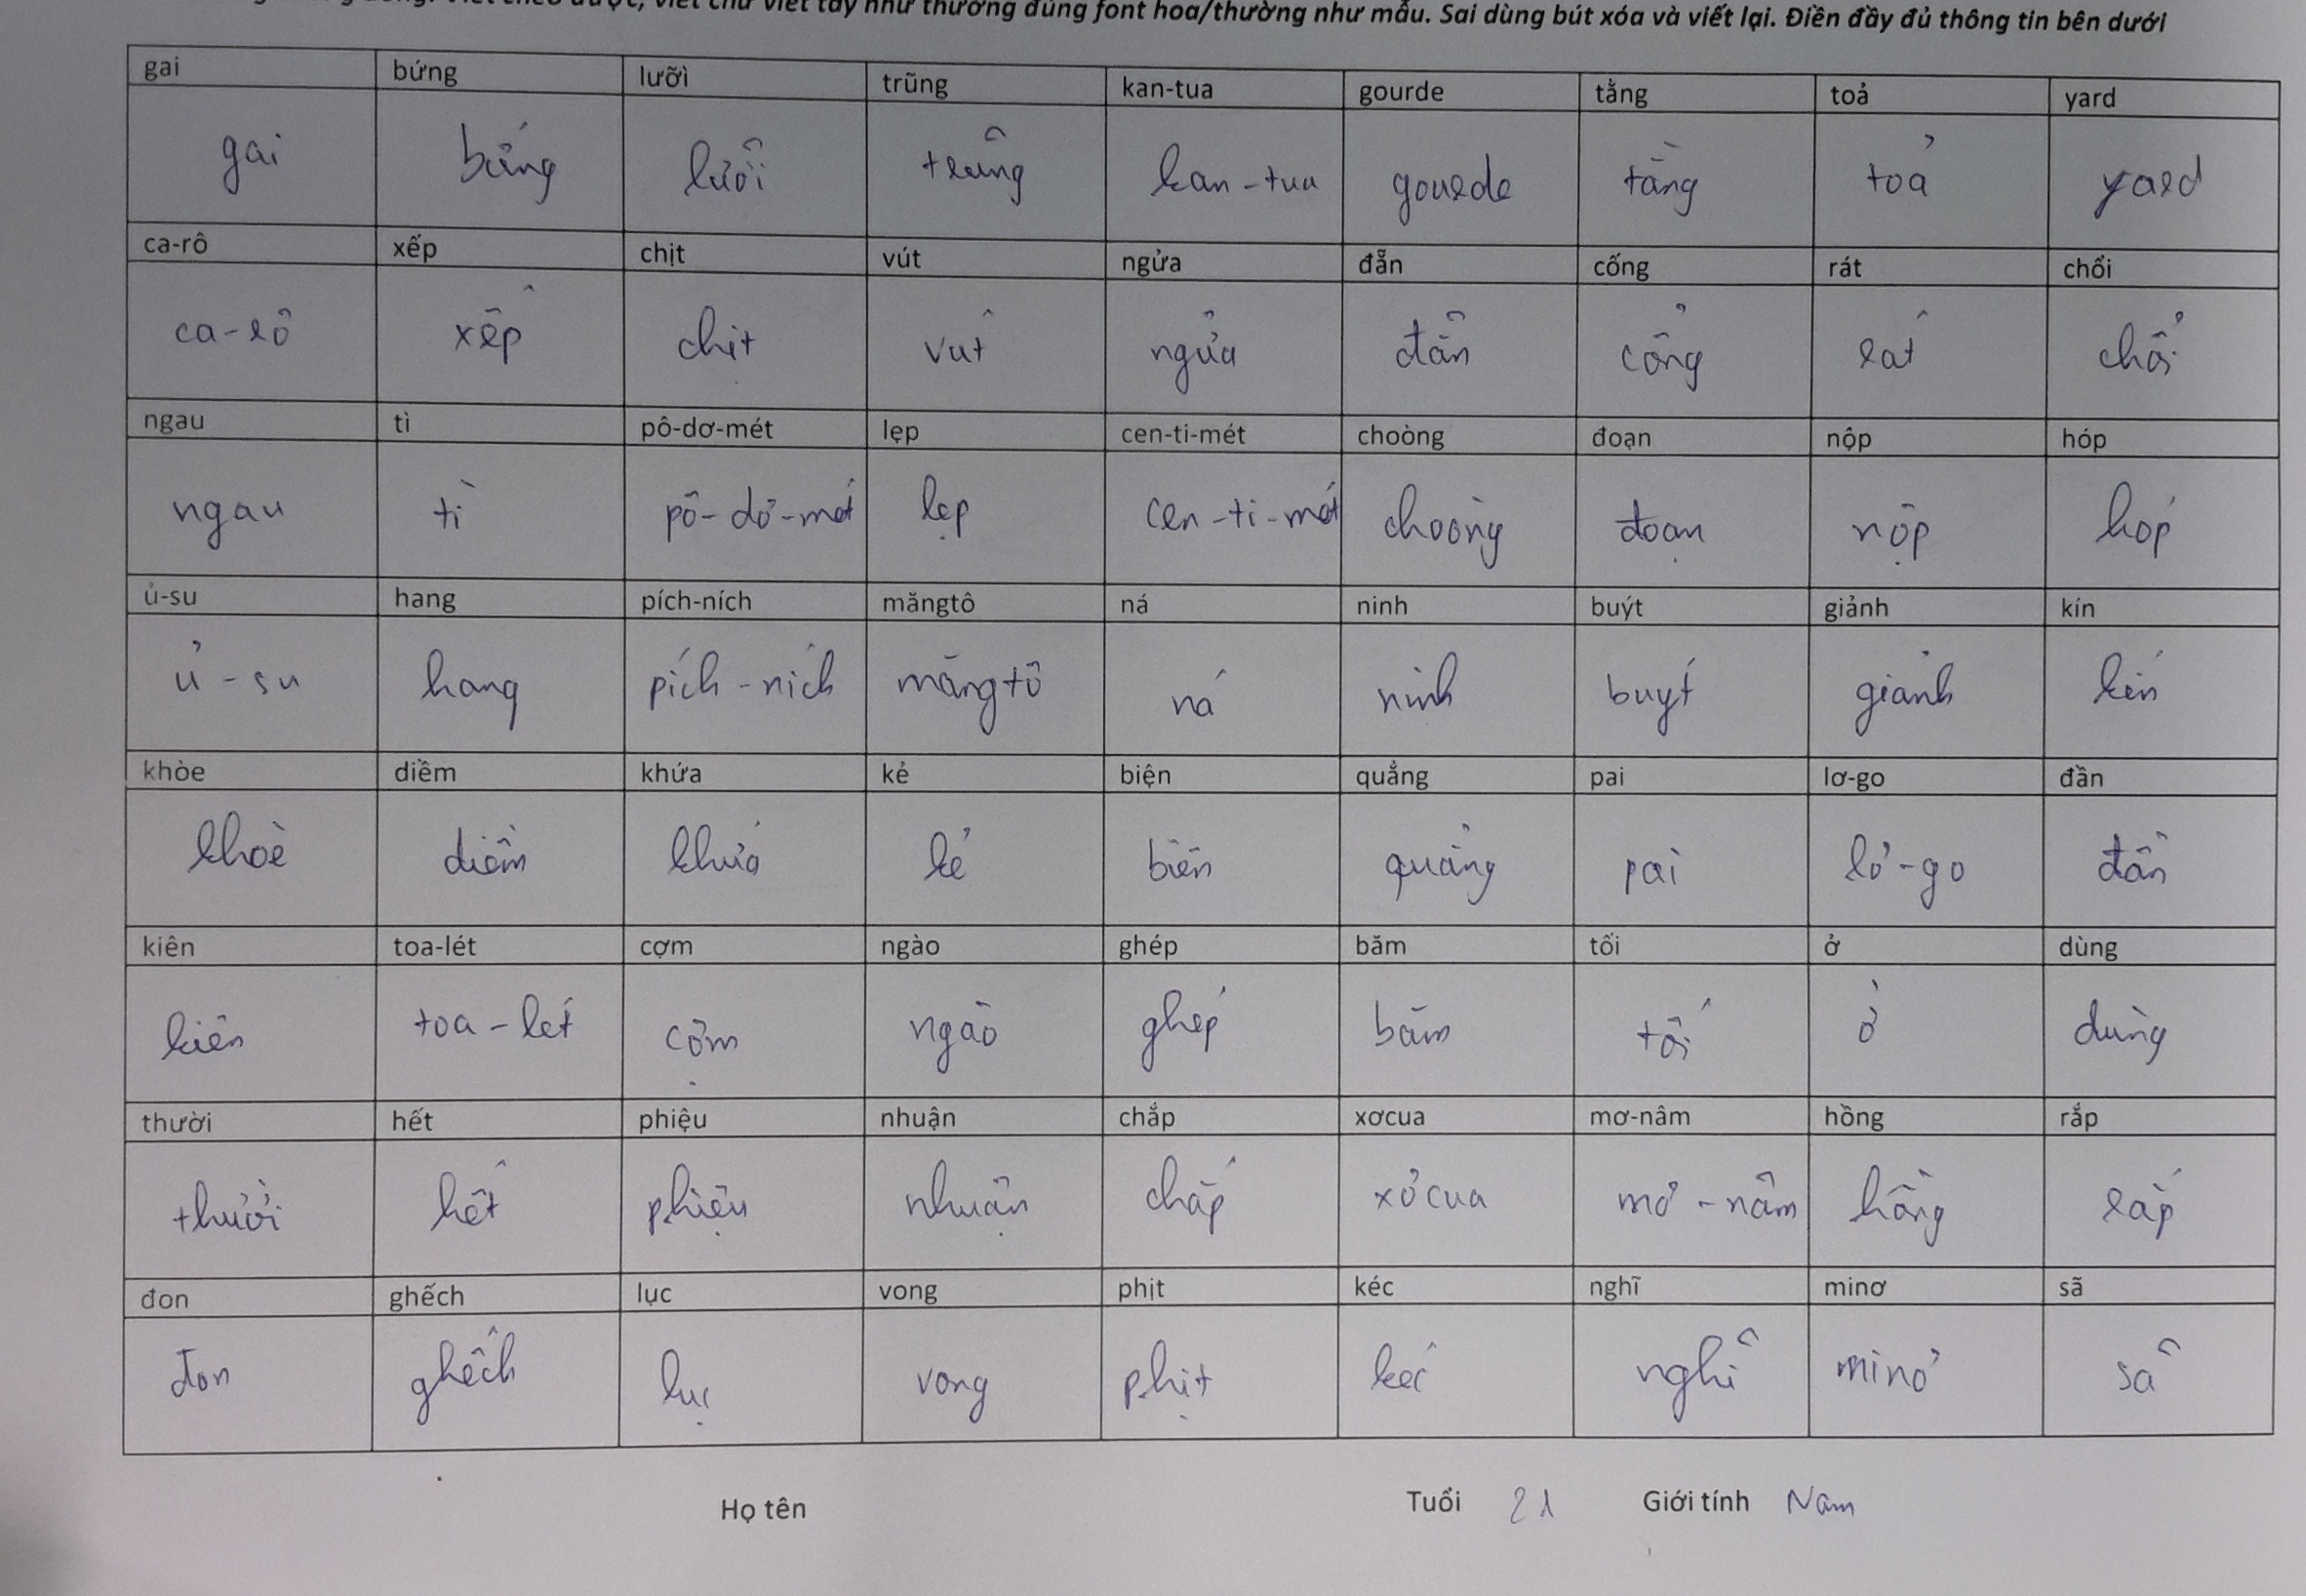 viết chữ viết tay như thường đúng font hoa/thường như mẫu. Sai dùng bút xóa và viết lại. Điền đầy đủ thông tin bên dưới
gai bứng lưỡi trũng kan-tua gourde tằng toả yard
gai bứng lưỡi trũng kan-tua gourde tằng toả yard
ca-rô xếp chịt vút ngửa đẵn cống rát chổi
ca-rô xếp chịt vút ngửa đẵn cống rát chổi
ngau tì pô-dơ-mét lẹp cen-ti-mét choòng đoạn nộp hóp
ngau tì pô-dơ-mét lẹp cen-ti-mét choòng đoạn nộp hóp
ủ-su hang pích-ních măngtô ná ninh buýt giảnh kín
ủ-su hang pích-ních măngtô ná ninh buýt giảnh kín
khòe diềm khứa kẻ biện quẳng pai lơ-go đần
khoè diềm khứa kẻ biện quẳng pai lơ-go đần
kiên toa-lét cợm ngào ghép băm tối ở dùng
kiên toa-lét cợm ngào ghép băm tối ở dùng
thười hết phiệu nhuận chắp xơcua mơ-nâm hồng rắp
thười hết phiệu nhuận chắp xơcua mơ-nâm hồng rắp
đon ghếch lục vong phịt kéc nghĩ minơ sã
đon ghếch lục vong phịt kéc nghĩ minơ sã
Họ tên Tuổi 21 Giới tính Nam